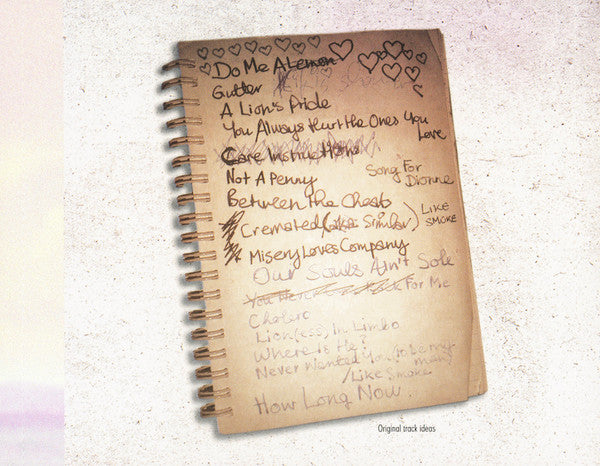 Do Me A Lemon
Gutter
A Lion's Pride
You Always Hurt the Ones You
Love
Care Instructions
Not A Penny
Song For
Dionne
Between the Cheats
Cremated (aka Similar)
LIKE
SMOKE
Misery Loves Company
Our Souls Ain't Sole
You Never For Me
Choleric
Lion(ess) In Limbo
Where is He?
Never Wanted You (to be my
man)
/Like Smoke
How Long Now
Original track ideas